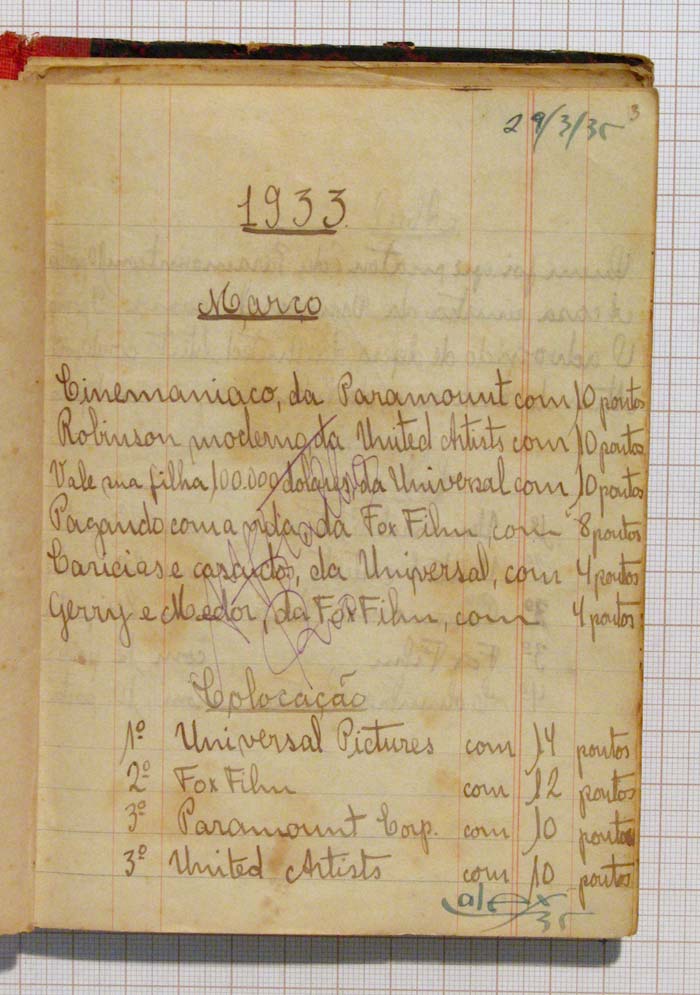 29/3/35
3
1933
Março
Cinemaniaco, da Paramount com 10 pontos
Robinson moderno da United Artists com 10 pontos
Vale sua filha 100.000 dolares, da Universal com 10 pontos
Pagando com a vida da Fox Film, com 8 pontos
Caricias e casacos, da Universal, com 4 pontos
Gerry e Medor, da Fox Film, com 4 pontos
Colocação
1º Universal Pictures com 14 pontos
2º Fox Film com 12 pontos
3º Paramount Corp. com 10 pontos
3º United Artists com 10 pontos
alex
35